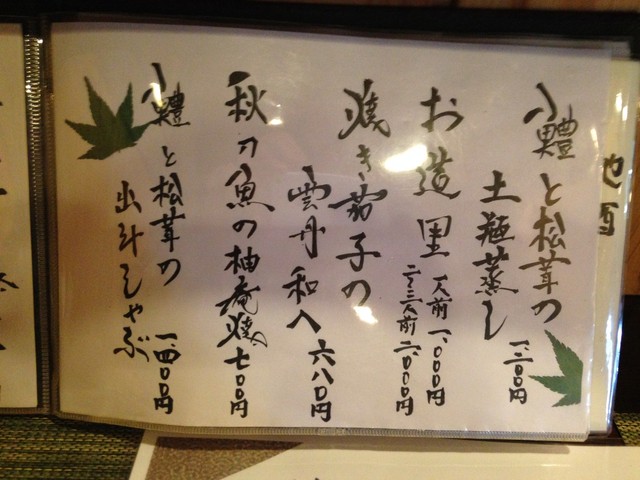 小鱧と松茸の
土瓶蒸し
一、二〇〇円
お造里
一人前 一、〇〇〇円
二〜三人前 二、〇〇〇円
焼き茄子の
雲丹和へ 六八〇円
秋刀魚の柚庵焼 七〇〇円
小鱧と松茸の
出汁しゃぶ
一、四〇〇円